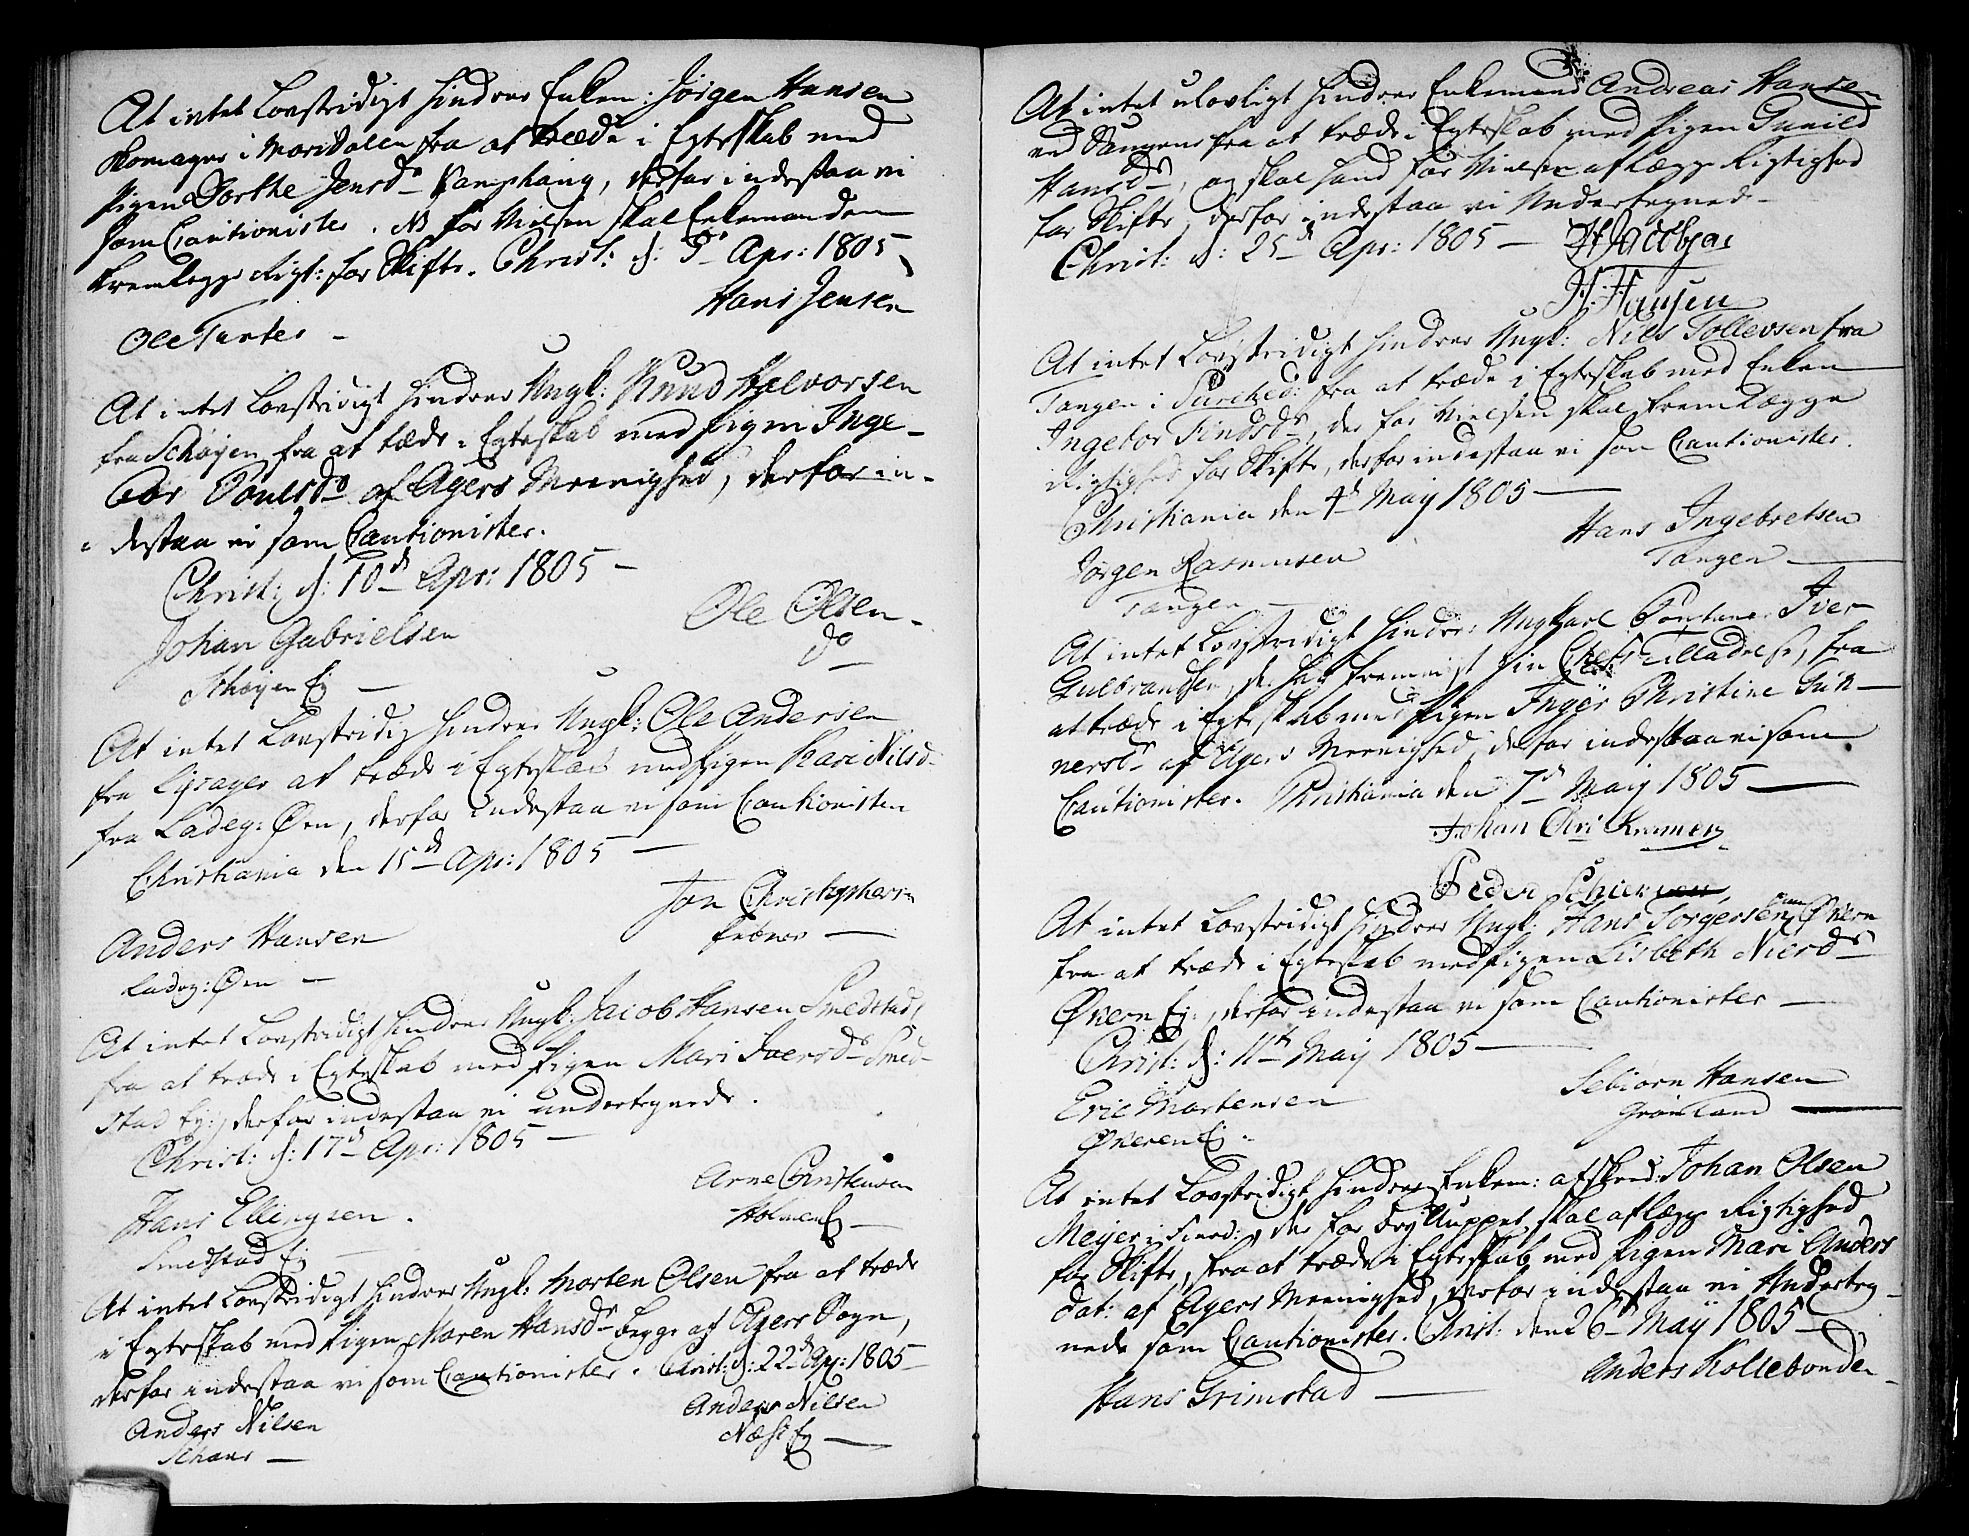 At intet Lovstridigt hindrer Enkem: Jørgen Hansen
Skomager i Maridalen fra at træde i Egteskab med
Pigen Dorthe Jensd. , derfor indestaa vi
som Cautionister. NB for Vielsen skal Enkemanden
fremlegge Rigt: for Skifte. Christ: d: Apr: 1805
Hans Jensen
Ole
At intet Lovstridigt hindrer Ungk: Knud Halvorsen
fra Schøyen fra at tæde i Egteskab med Pigen Inge-
bor Poulsd. af Agers Meenighed, derfor in-
destaa vi som Cautionister.
Christ: d: 10d Apr: 1805 —
Johan Gabrielsen
Schøyen Ej —
Ole Olsen
do
At intet Lovstridig hindrer Ungk: Ole Andersen
fra at træde i Egteskab med Pigen Kari Nilsd.
fra Ladeg: Øen, derfor indestaa vi som Cautionister
Christiania den 15d Apr: 1805 —
Jon Christophers:
Anders Hansen
Ladeg: Øen —
At intet Lovstridigt hindrer Ungk: Jacob Hansen Smedstad,
fra at træde i Egteskab med Pigen Mari Iversd. Smed-
stad Ej:, derfor indestaa vi undertegnede.
Christ: d: 17d Apr: 1805 —
Hans Ellingsen.
Smedstad Ej —
Arne Christensen
Holmen Ej —
At intet Lovstridigt hindrer Ungk: Morten Olsen fra at træde
i Egteskab med Pigen Maren Hansd. begge af Agers Sogn,
derfor indestaa vi som Cautionister. Christ: d: 22d Ap: 1805
Anders Nilsen
Anders Nilsen
Næss Ej —
At intet ulovligt hindrer Enkemand Andreas Hansen
ved fra at træde i Egteskab med Pigen Gunild
Hansd., og skal hand for Vielsen aflægge Rigtighed
for Skifte, derfor indestaa vi Undertegnede
Christ: d: 25d Apr: 1805 —
H: Hansen
At intet Lovstridigt hindrer Ungk: Nils Tollevsen fra
Tangen i fra at træde i Egteskab med Enken
Ingebor Findsd., der for Vielsen skal fremlægge
Rigtighed for Skifte, derfor indestaa vi som Cautionister.
Christiania den 4d May 1805 —
Hans Ingebretsen
Tangen —
Jørgen Rasmusen
Tangen —
At intet Lovstridigt hindrer Ungkarl Iver
Gulbrandsen, der har fremviist sin Chefs Tilladelse, fra
at træde i Egteskab med Pigen Inger Christine Gun-
nersd. af Agers Meenighed, derfor indestaa vi som
Cautionister. Christiania den 7d May 1805 —
Johan Chri
Peder
At intet Lovstridigt hindrer Ungk: Hans Jørgensen Økern
fra at træde i Egteskab med Pigen Lisbeth Niersd.
Økern Ej:, derfor indestaa vi som Cautionister —
Christ: d: 11te May 1805 —
Eric Mortensen
Økeren Ej.
Sebiørn Hansen
Grønland —
At intet Lovstridigt hindrer Enkem: afskeed: Johan Olsen
Meyer i , der for skal aflægge Rigtighed
for Skifte, fra at træde i Egteskab med Pigen Mari Anders
dat: af Agers Meenighed, derfor indestaa vi Underteg-
nede som Cautionister. Christ: den 26d May 1805 —
Hans Grimstad —
Anders Kollebonden